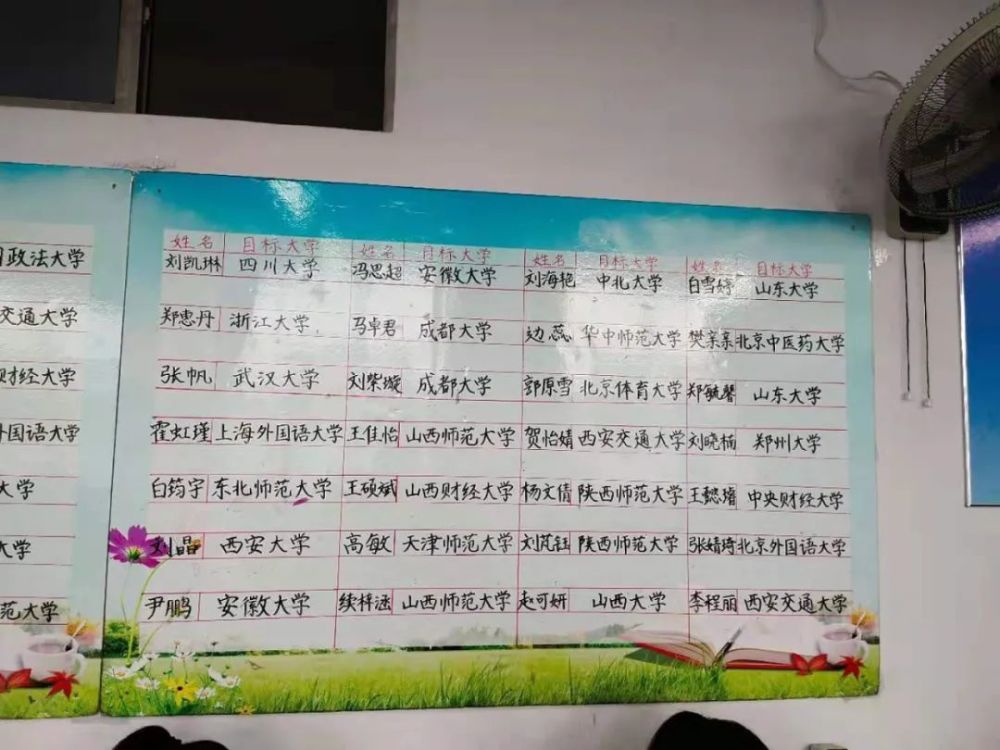 姓名 目标大学 姓名 目标大学 姓名 目标大学 姓名 目标大学
政法大学 刘凯琳 四川大学 冯思超 安徽大学 刘海艳 中北大学 白雪婷 山东大学
交通大学 郑惠丹 浙江大学 马卓君 成都大学 边蕊 华中师范大学 樊亲亲 北京中医药大学
财经大学 张帆 武汉大学 刘紫璇 成都大学 郭原雪 北京体育大学 郑毓馨 山东大学
外国语大学 霍虹瑾 上海外国语大学 王佳怡 山西师范大学 贺怡婧 西安交通大学 刘晓楠 郑州大学
大学 白筠宇 东北师范大学 王硕斌 山西财经大学 杨文倩 陕西师范大学 王懿璿 中央财经大学
大学 刘晶 西安大学 高敏 天津师范大学 刘芃钰 陕西师范大学 张婧琦 北京外国语大学
范大学 尹鹏 安徽大学 续梓涵 山西师范大学 赵可妍 山西大学 李程丽 西安交通大学